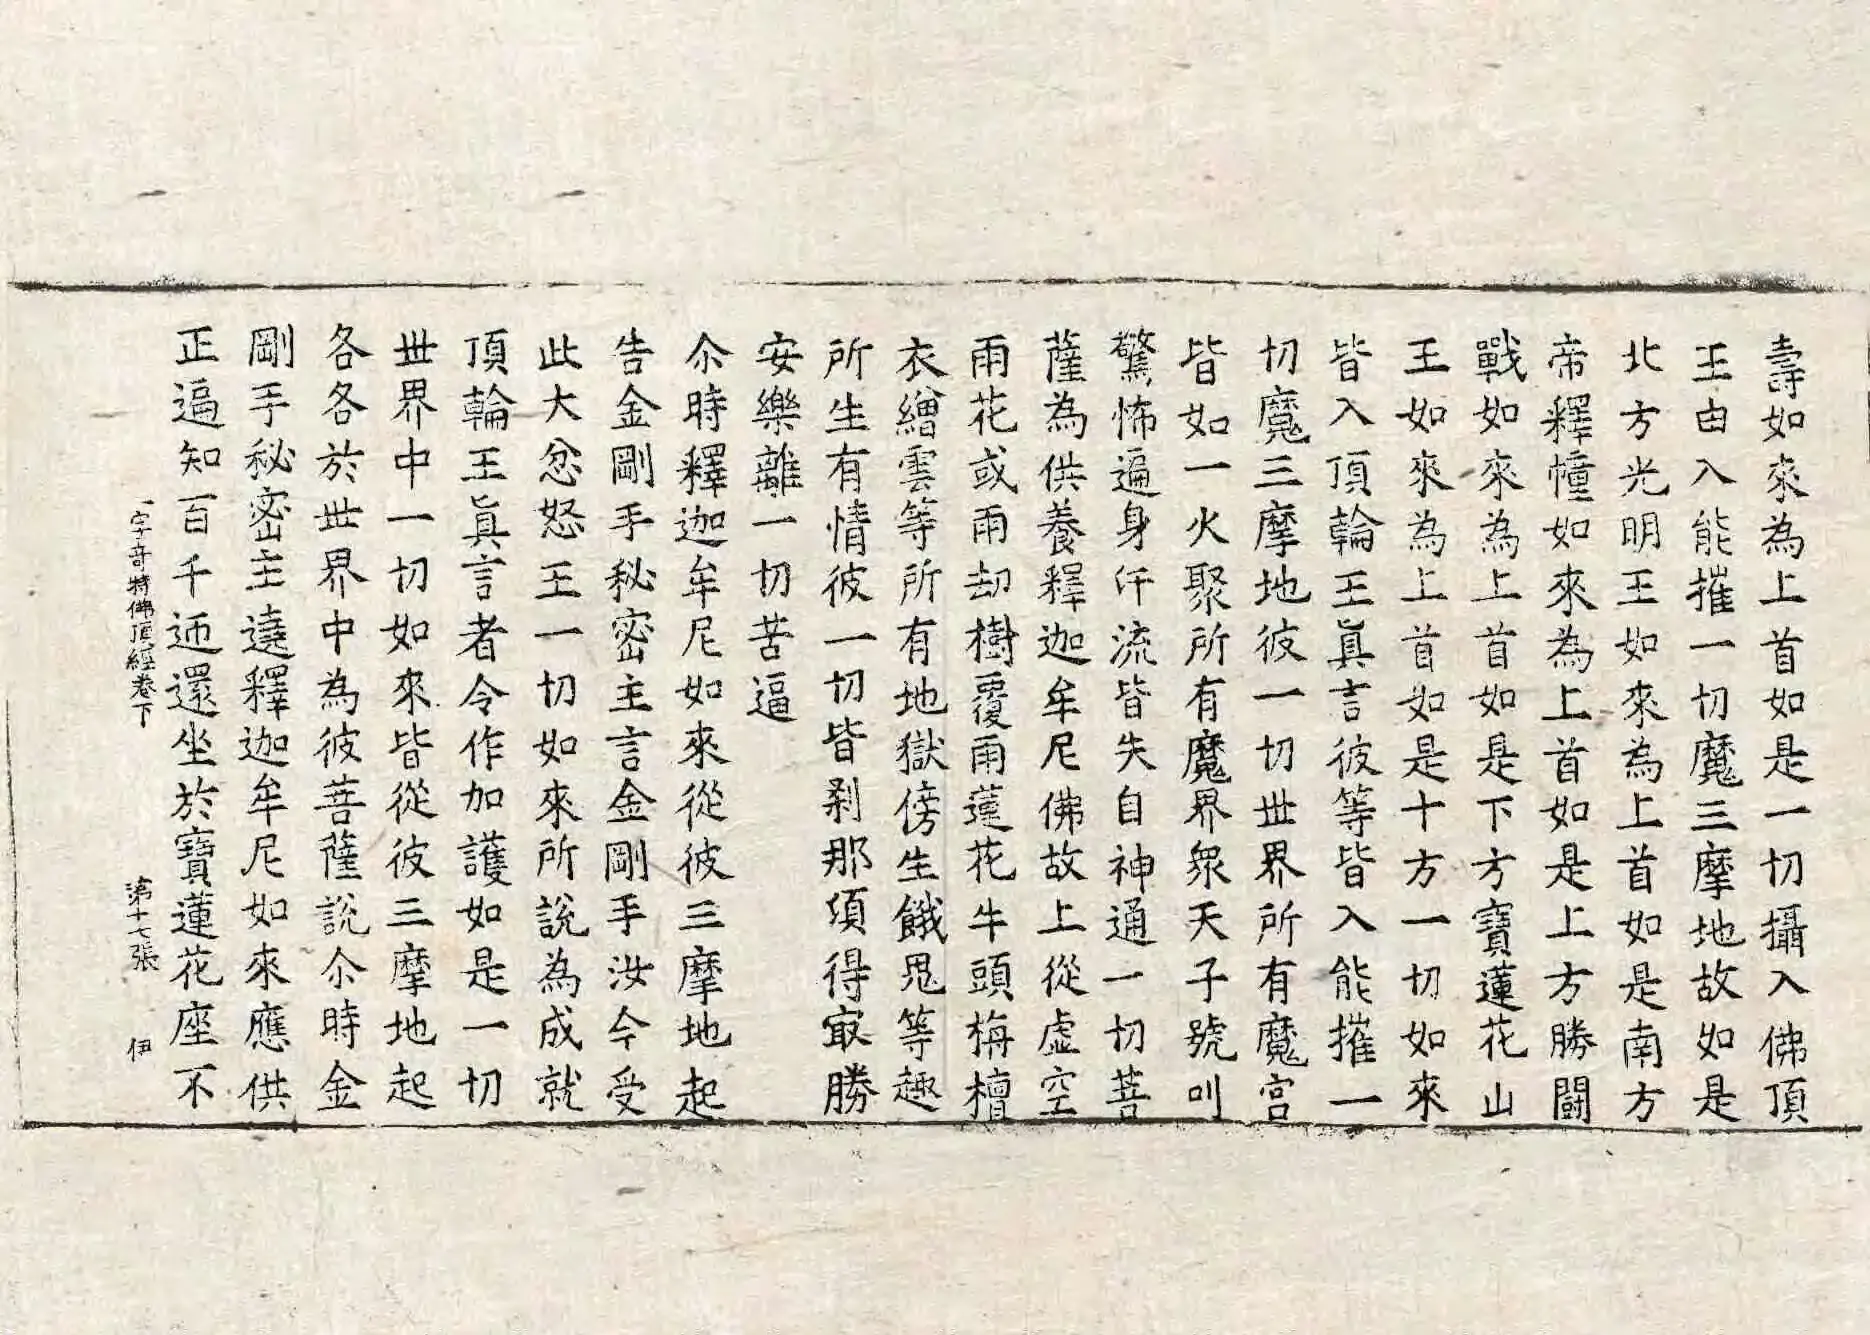 壽如來為上首如是一切攝入佛頂
王由入能摧一切魔三摩地故如是
北方光明王如來為上首如是南方
帝釋幢如來為上首如是上方勝鬪
戰如來為上首如是下方寶蓮花山
王如來為上首如是十方一切如來
皆入頂輪王真言彼等皆入能摧一
切魔三摩地彼一切世界所有魔宮
皆如一火聚所有魔界眾天子號叫
驚怖遍身汗流皆失自神通一切菩
薩為供養釋迦牟尼佛故上從虛空
雨花或雨劫樹覆雨蓮花牛頭栴檀
衣繒雲等所有地獄傍生餓鬼等趣
所生有情彼一切皆剎那須得冣勝
安樂離一切苦逼
尒時釋迦牟尼如來從彼三摩地起
告金剛手秘密主言金剛手汝今受
此大忿怒王一切如來所說為成就
頂輪王真言者令作加護如是一切
世界中一切如來皆從彼三摩地起
各各於世界中為彼菩薩說尒時金
剛手秘密主遶釋迦牟尼如來應供
正遍知百千迊還坐於寶蓮花座不
一字奇特佛頂經卷下　第十七張　伊